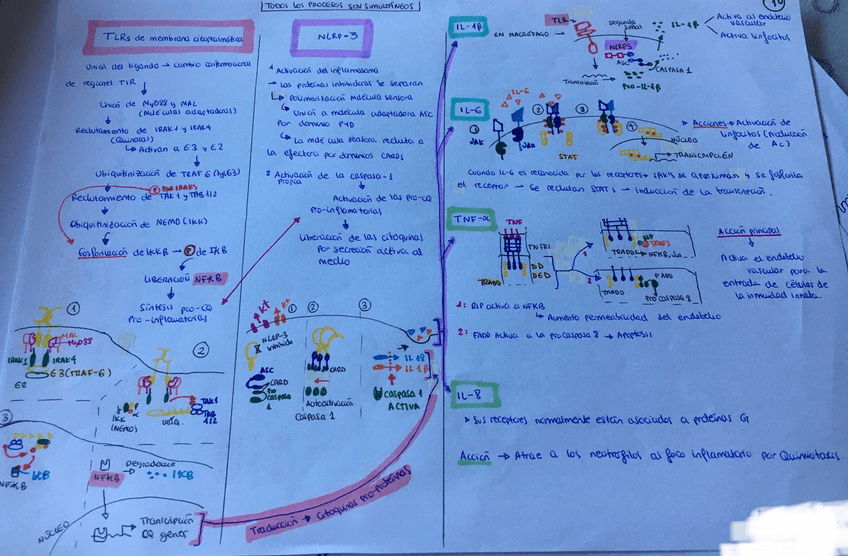 TODOS LOS PROCESOS SON SIMULTÁNEOS
10
TLRs de membrana citoplasmática
Unión del ligando → cambio conformacional
de regiones TIR
Unión de MyD88 y MAL
(Moléculas adaptadoras)
Reclutamiento de IRAK1 y IRAK4
(Quinasas)
↳ Activan a E3 y E2
Ubiquitinización de TRAF 6
P POR IRAKs
Reclutamiento de TAK1 y TAB 1/2
Ubiquitinización de NEMO (IKK)
Fosforilación de IKKB → P de IKB
LIBERACIÓN NFKB
Síntesis pro-CQ
Pro-inflamatorias
1
IRAK1
MAL
MyD88
IRAK4
E3 (TRAF-6)
E2
2
IKK
(NEMO)
UBIQ.
TAK1
TAB
1/2
3
IKB
NFKB
NFKB
Degradación
IKB
NÚCLEO
Transcripción
CQ genes
Traducción → Citoquinas pro-proteínas
NLRP-3
1 Activación del inflamasoma
→ Las proteínas inhibidoras se separan
↳ Polimerización molécula sensora
↳ Unión a molécula adaptadora ASC
por dominio PYD
↳ La molécula sensora recluta a
la efectora por dominios CARDs
2 Activación de la caspasa-1
propia
Activación de las pro-CQ
Pro-inflamatorias
Liberación de las citoquinas
por secreción activa al
medio
K+
K+
1
2
3
NLRP-3
inhibido
ASC
CARD
Pro
caspasa
1
CARD
Autoactivación
Caspasa 1
IL 18
IL 1β
Caspasa 1
ACTIVA
IL-1β
EN MACRÓFAGO
TLR
Segunda
señal
NLRP3
ASC
CASPASA 1
Transcripción
Pro-IL-1β
IL-1β
Activa al endotelio
vascular
Activa linfocitos
IL-6
IL-6
1
2
3
4
JAK
JAK
STAT
NÚCLEO
TRANSCRIPCIÓN
Acciones → Activación de
linfocitos (Producción
de Ac)
Cuando IL-6 es reconocida por los receptores, JAK's se aproximan y se fosforila
el receptor → Se reclutan STATs → inducción de la transcripción.
TNF-α
TNF
TNFR1
TRADD
DD
DED
1
2
RIP
TRAF2
TRADD
NFKB,
TRADD
FADD
Pro caspasa 8
Acción principal
Activa el endotelio
vascular para la
entrada de células de
la inmunidad innata.
1: RIP activa a NFKB
↳ Aumento permeabilidad del endotelio
2: FADD Activa a la procaspasa 8 → Apoptosis
IL-8
▸ Sus receptores normalmente están asociados a proteínas G
Acción → Atrae a los neutrófilos al foco inflamatorio por Quimiotaxis.